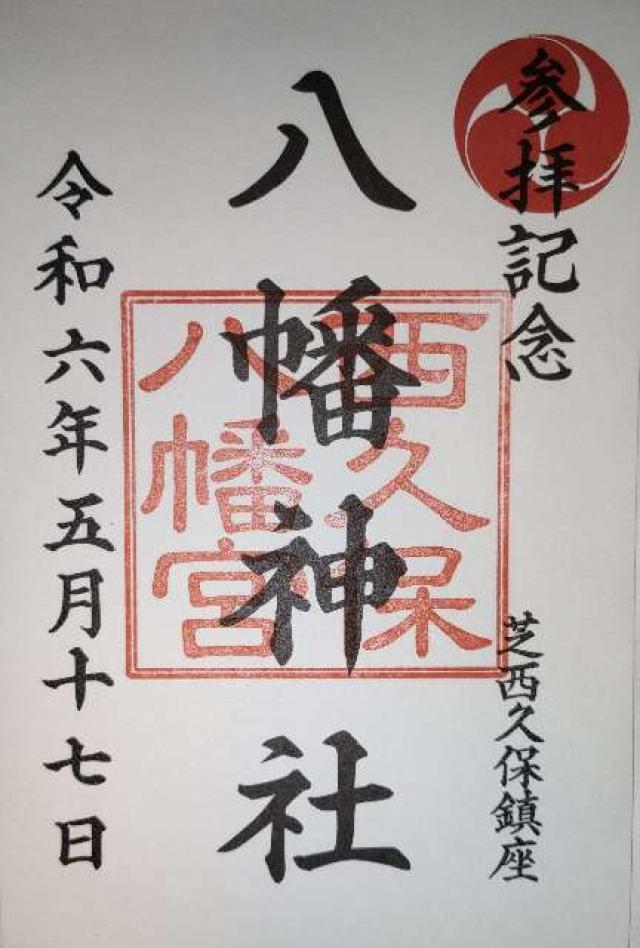 参拝記念
芝西久保鎮座
八幡神社
西久保
八幡宮
令和六年五月十七日